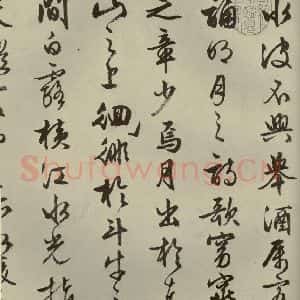 水波不興舉酒屬客
誦明月之詩歌窈窕
之章少焉月出於東
山之上徊徘於斗牛之
間白露橫江水光接
Shufawang.CN